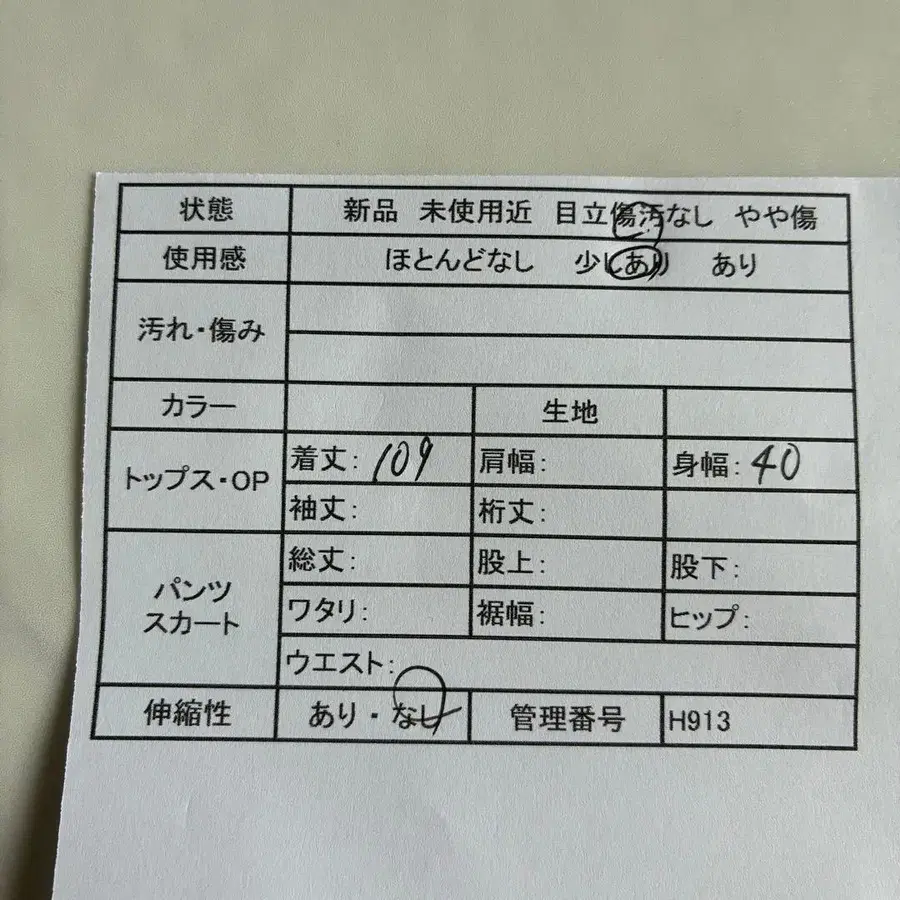 状態 新品 未使用近 目立傷汚なし やや傷
使用感 ほとんどなし 少しあり あり
汚れ・傷み
カラー 生地
トップス・OP 着丈: 109 肩幅: 身幅: 40
袖丈: 裄丈:
パンツ スカート 総丈: 股上: 股下:
ワタリ: 裾幅: ヒップ:
ウエスト:
伸縮性 あり・なし 管理番号 H913